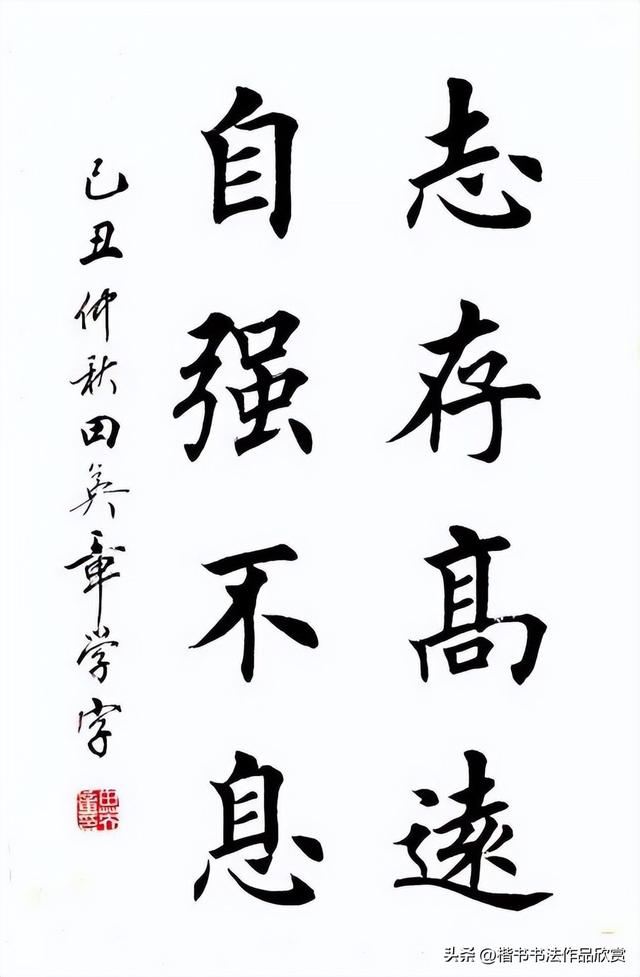 志存髙遠
自强不息
己丑仲秋田英章学字
头条 @楷书书法作品欣赏